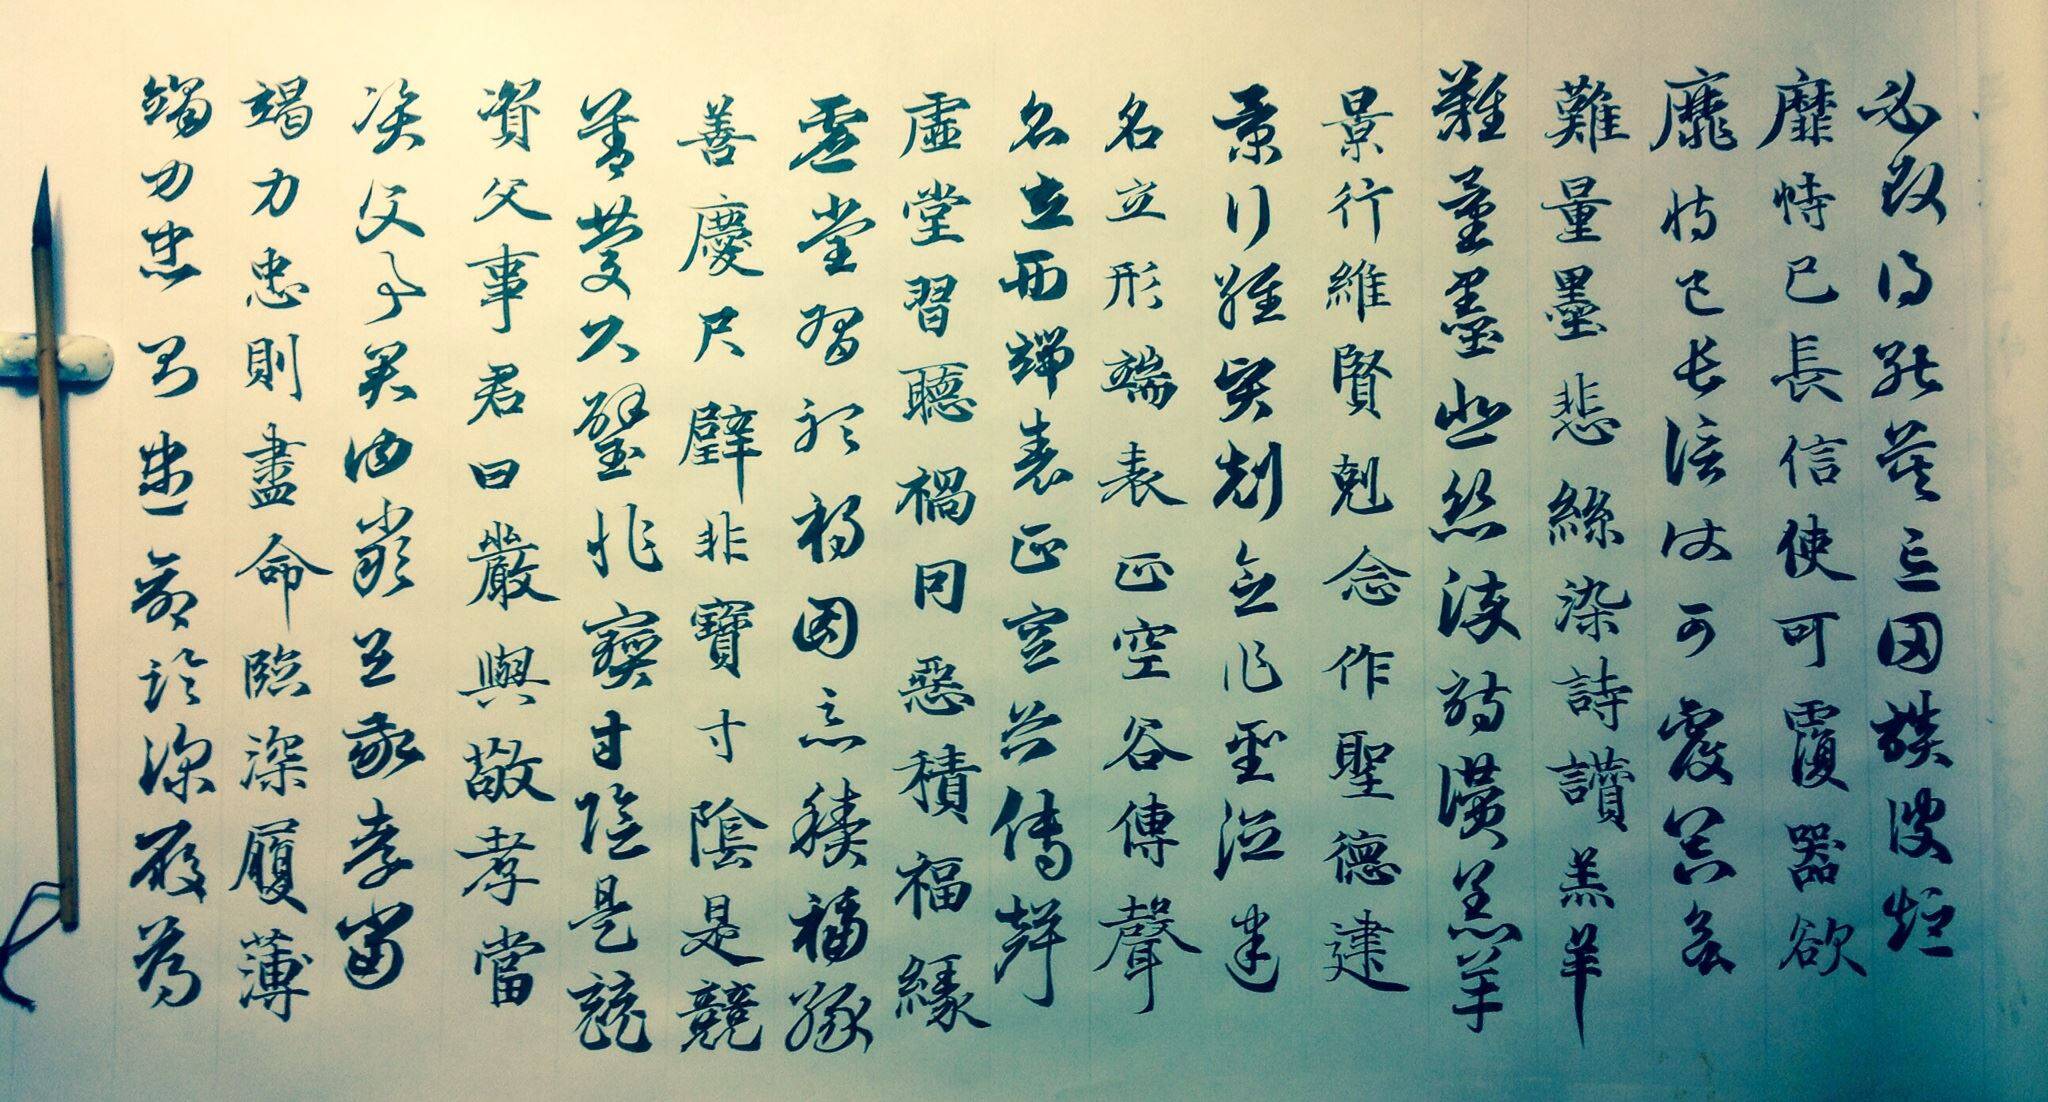 必改得能莫忘罔談彼短
靡恃己長信使可覆器欲
靡恃己長信使可覆器欲
難量墨悲絲染詩讚羔羊
難量墨悲絲染詩讚羔羊
景行維賢剋念作聖德建
景行維賢剋念作聖德建
名立形端表正空谷傳聲
名立形端表正空谷傳聲
虛堂習聽禍因惡積福緣
虛堂習聽禍因惡積福緣
善慶尺璧非寶寸陰是競
善慶尺璧非寶寸陰是競
資父事君曰嚴與敬孝當
資父事君曰嚴與敬孝當
竭力忠則盡命臨深履薄
竭力忠則盡命臨深履薄